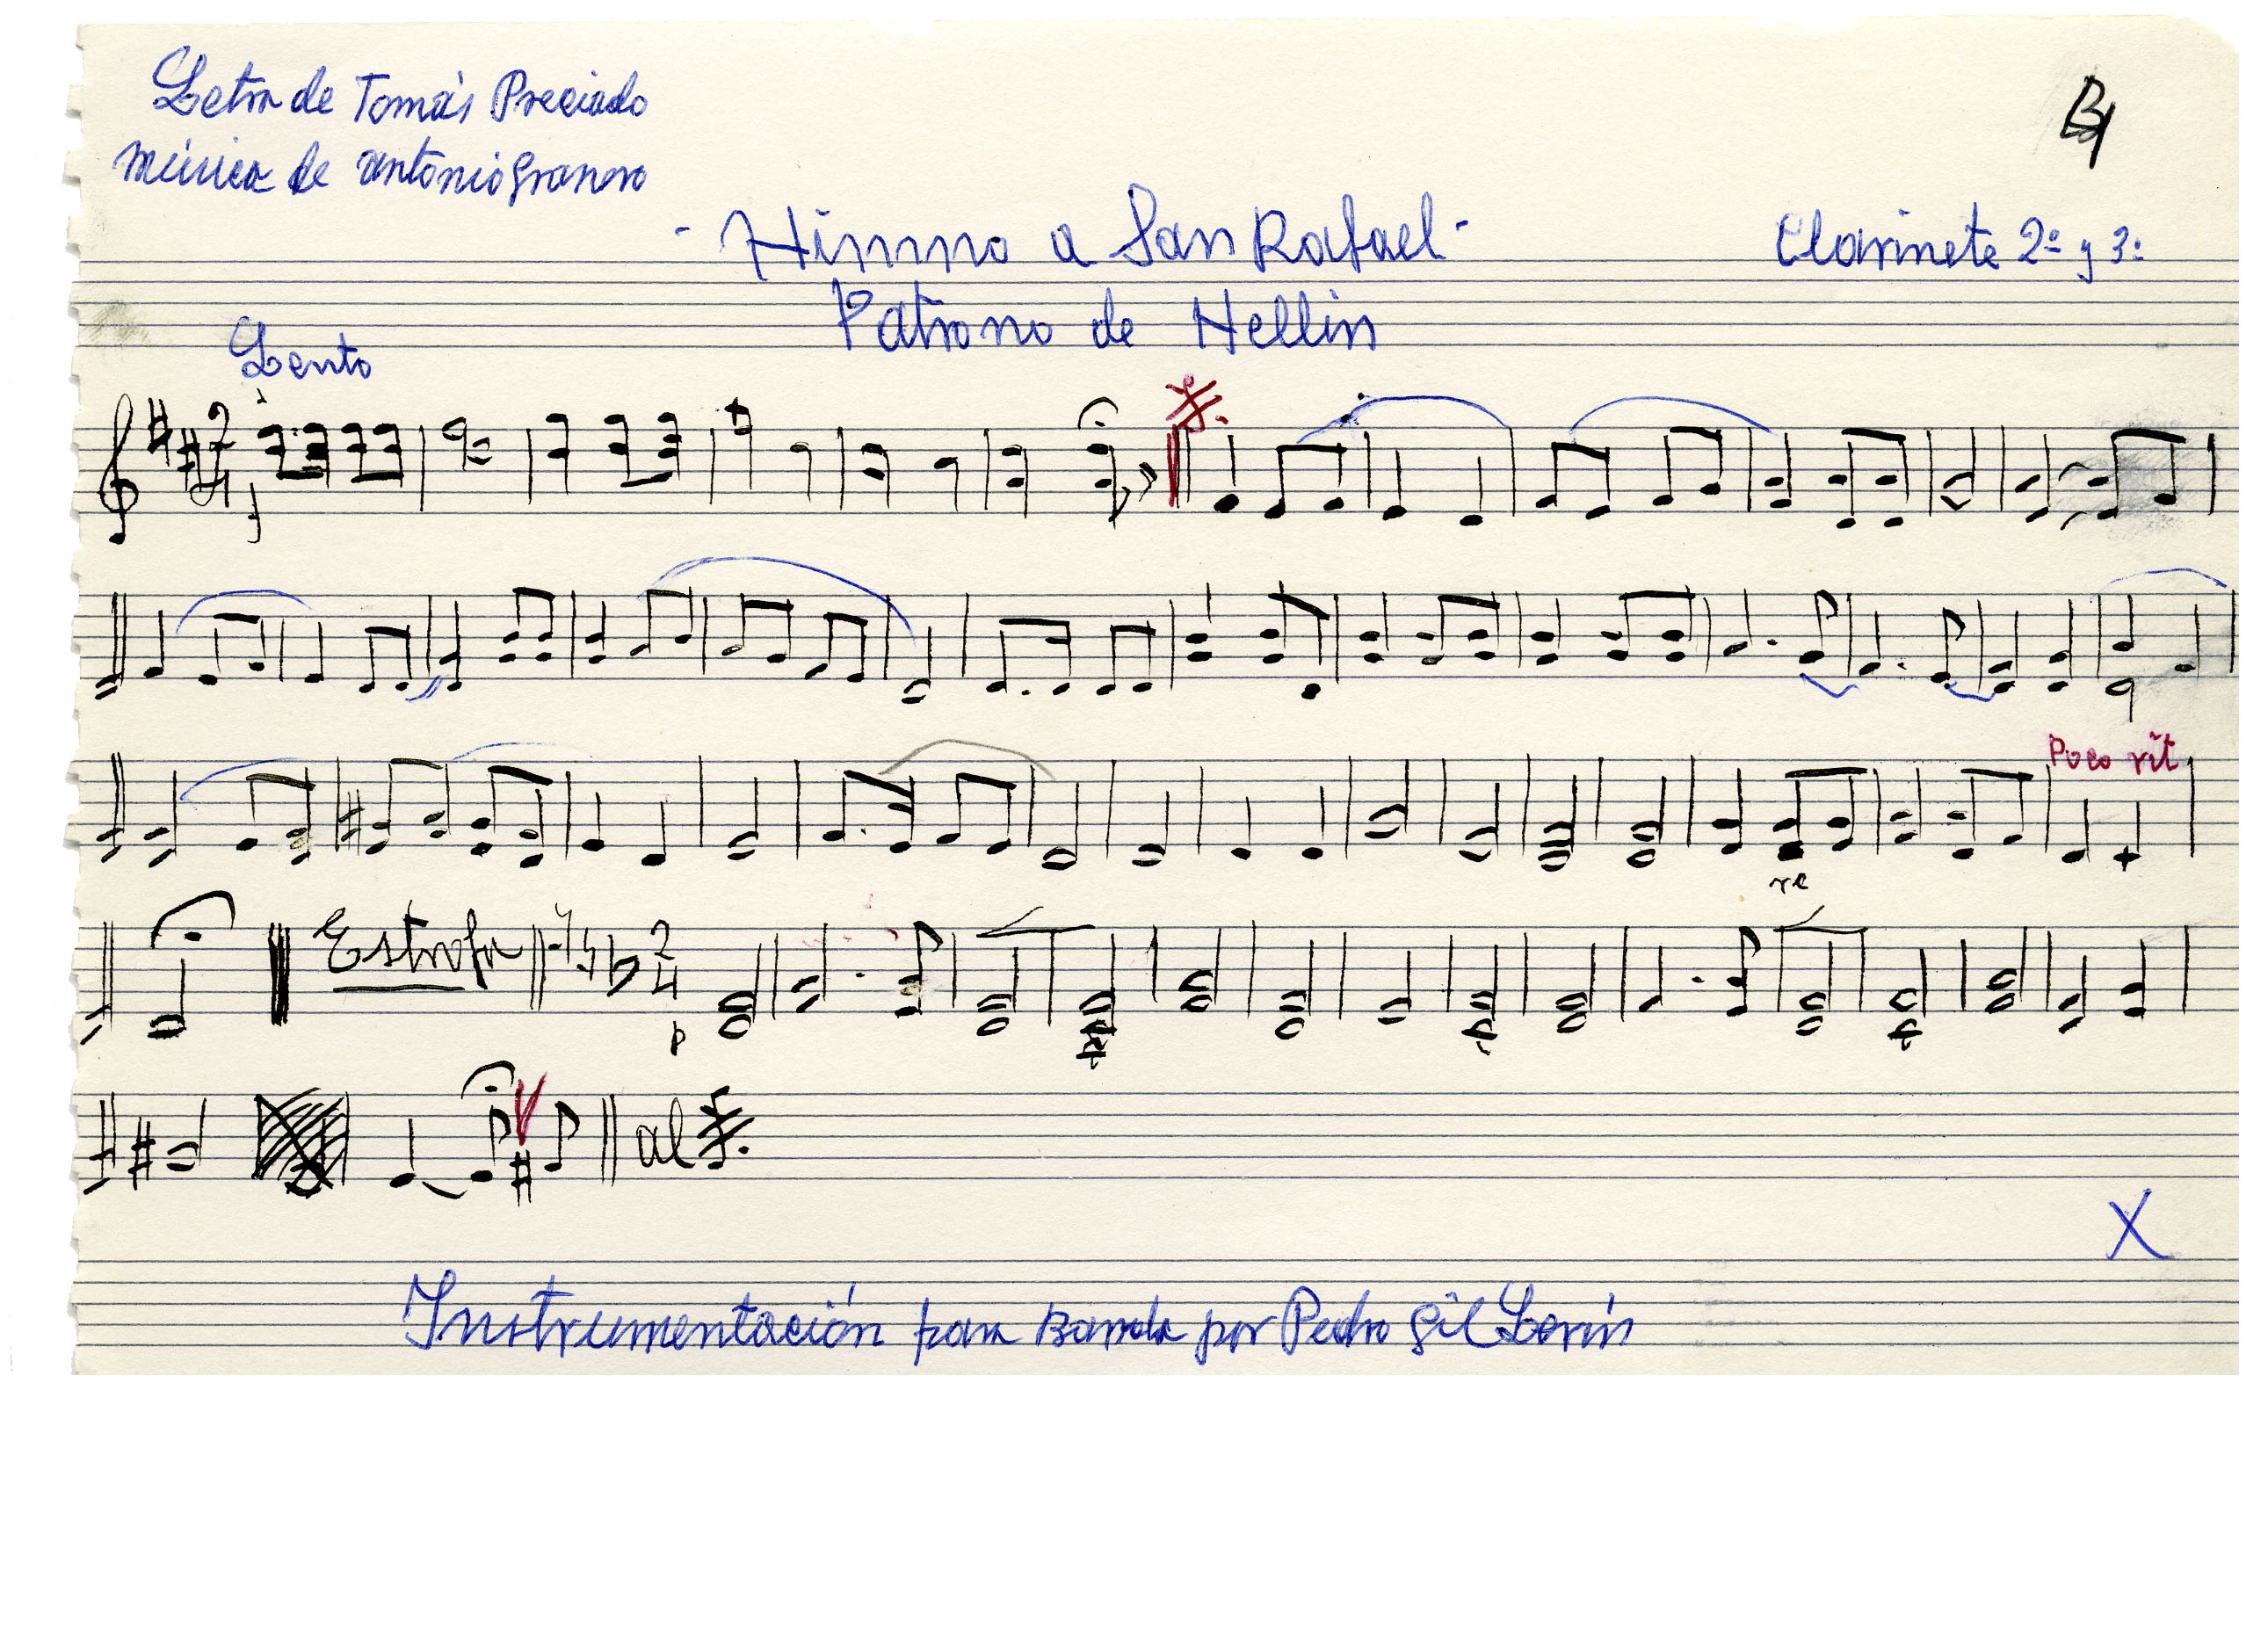 Letra de Tomás Preciado
Música de Antonio Granero
- Himno a San Rafael -
Clarinete 2º y 3º
Patrono de Hellin
Lento
Poco rit
re
Estrofa
p
al
X
Instrumentación para Banda por Pedro Gil Lerín